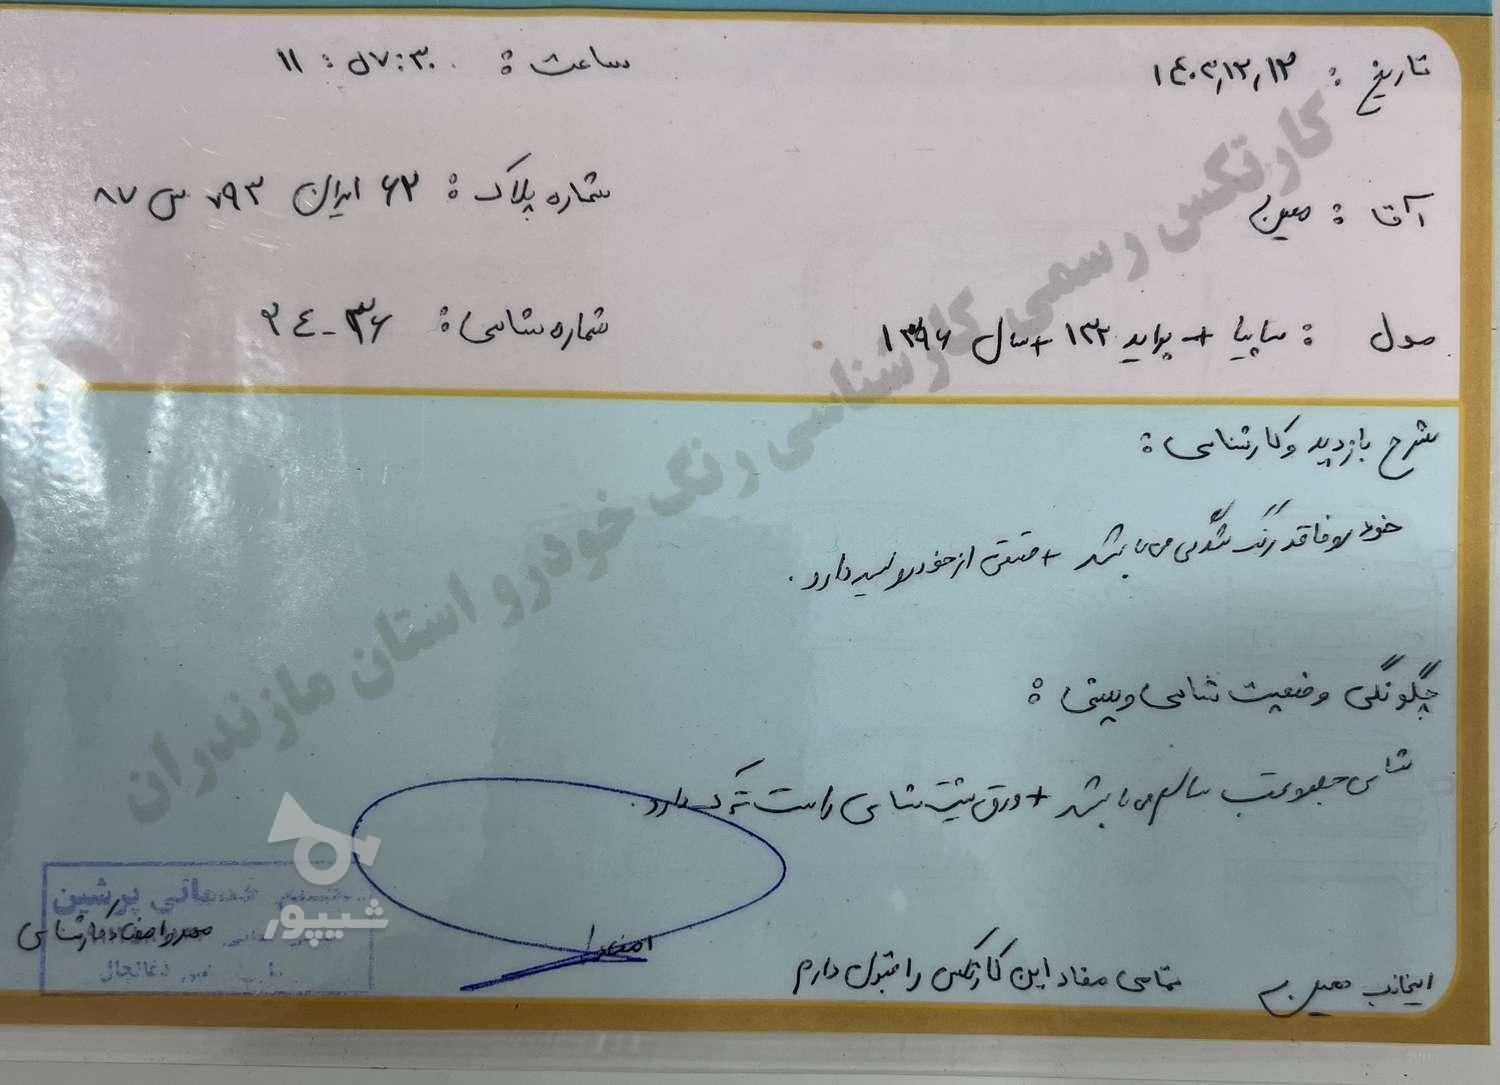 تاریخ : ۱۴۰۲,۱۲,۱۲
ساعت : ۱۱ : ۵۷:۳۰
آقا : معین
شماره پلاک : ۶۲ ایران ۷۹۳ س ۸۷
مدل : سایپا + پراید ۱۳۲ + سال ۱۳۹۶
شماره شاسی : ۳۴-۳۶
شرح بازدید و کارشناسی :
خودرو فاقد رنگ شدگی می باشد + قسمتی از خودرو لیسه دارد .
چگونگی وضعیت شاسی و سینی :
شاسی جلو و عقب سالم می باشد + ورق پشت شاسی راست ترک دارد .
اینجانب معین تمامی مفاد این کارتکس را قبول دارم
مهر و امضاء کارشناس
خدماتی پرشین
کارتکس رسمی کارشناسی رنگ خودرو استان مازندران
شیپور